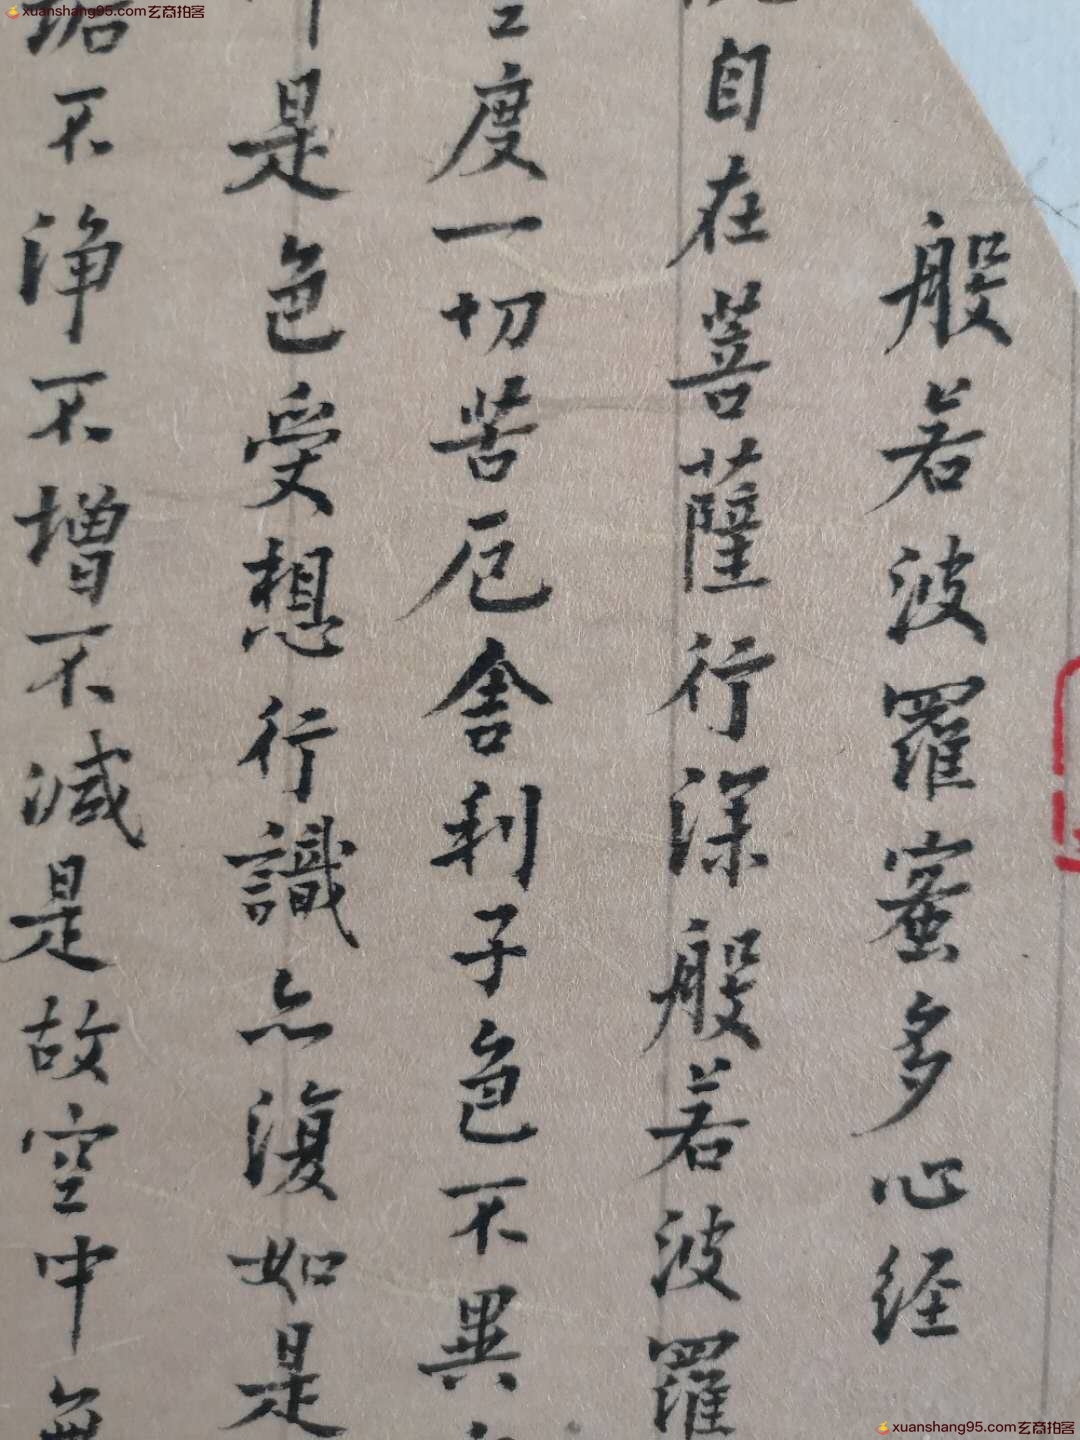 xuanshang95.com玄商拍客
般若波羅蜜多心経
自在菩薩行深般若波羅
度一切苦厄舍利子色不異
是色受想行識亦復如是
垢不浄不增不減是故空中無
xuanshang95.com玄商拍客